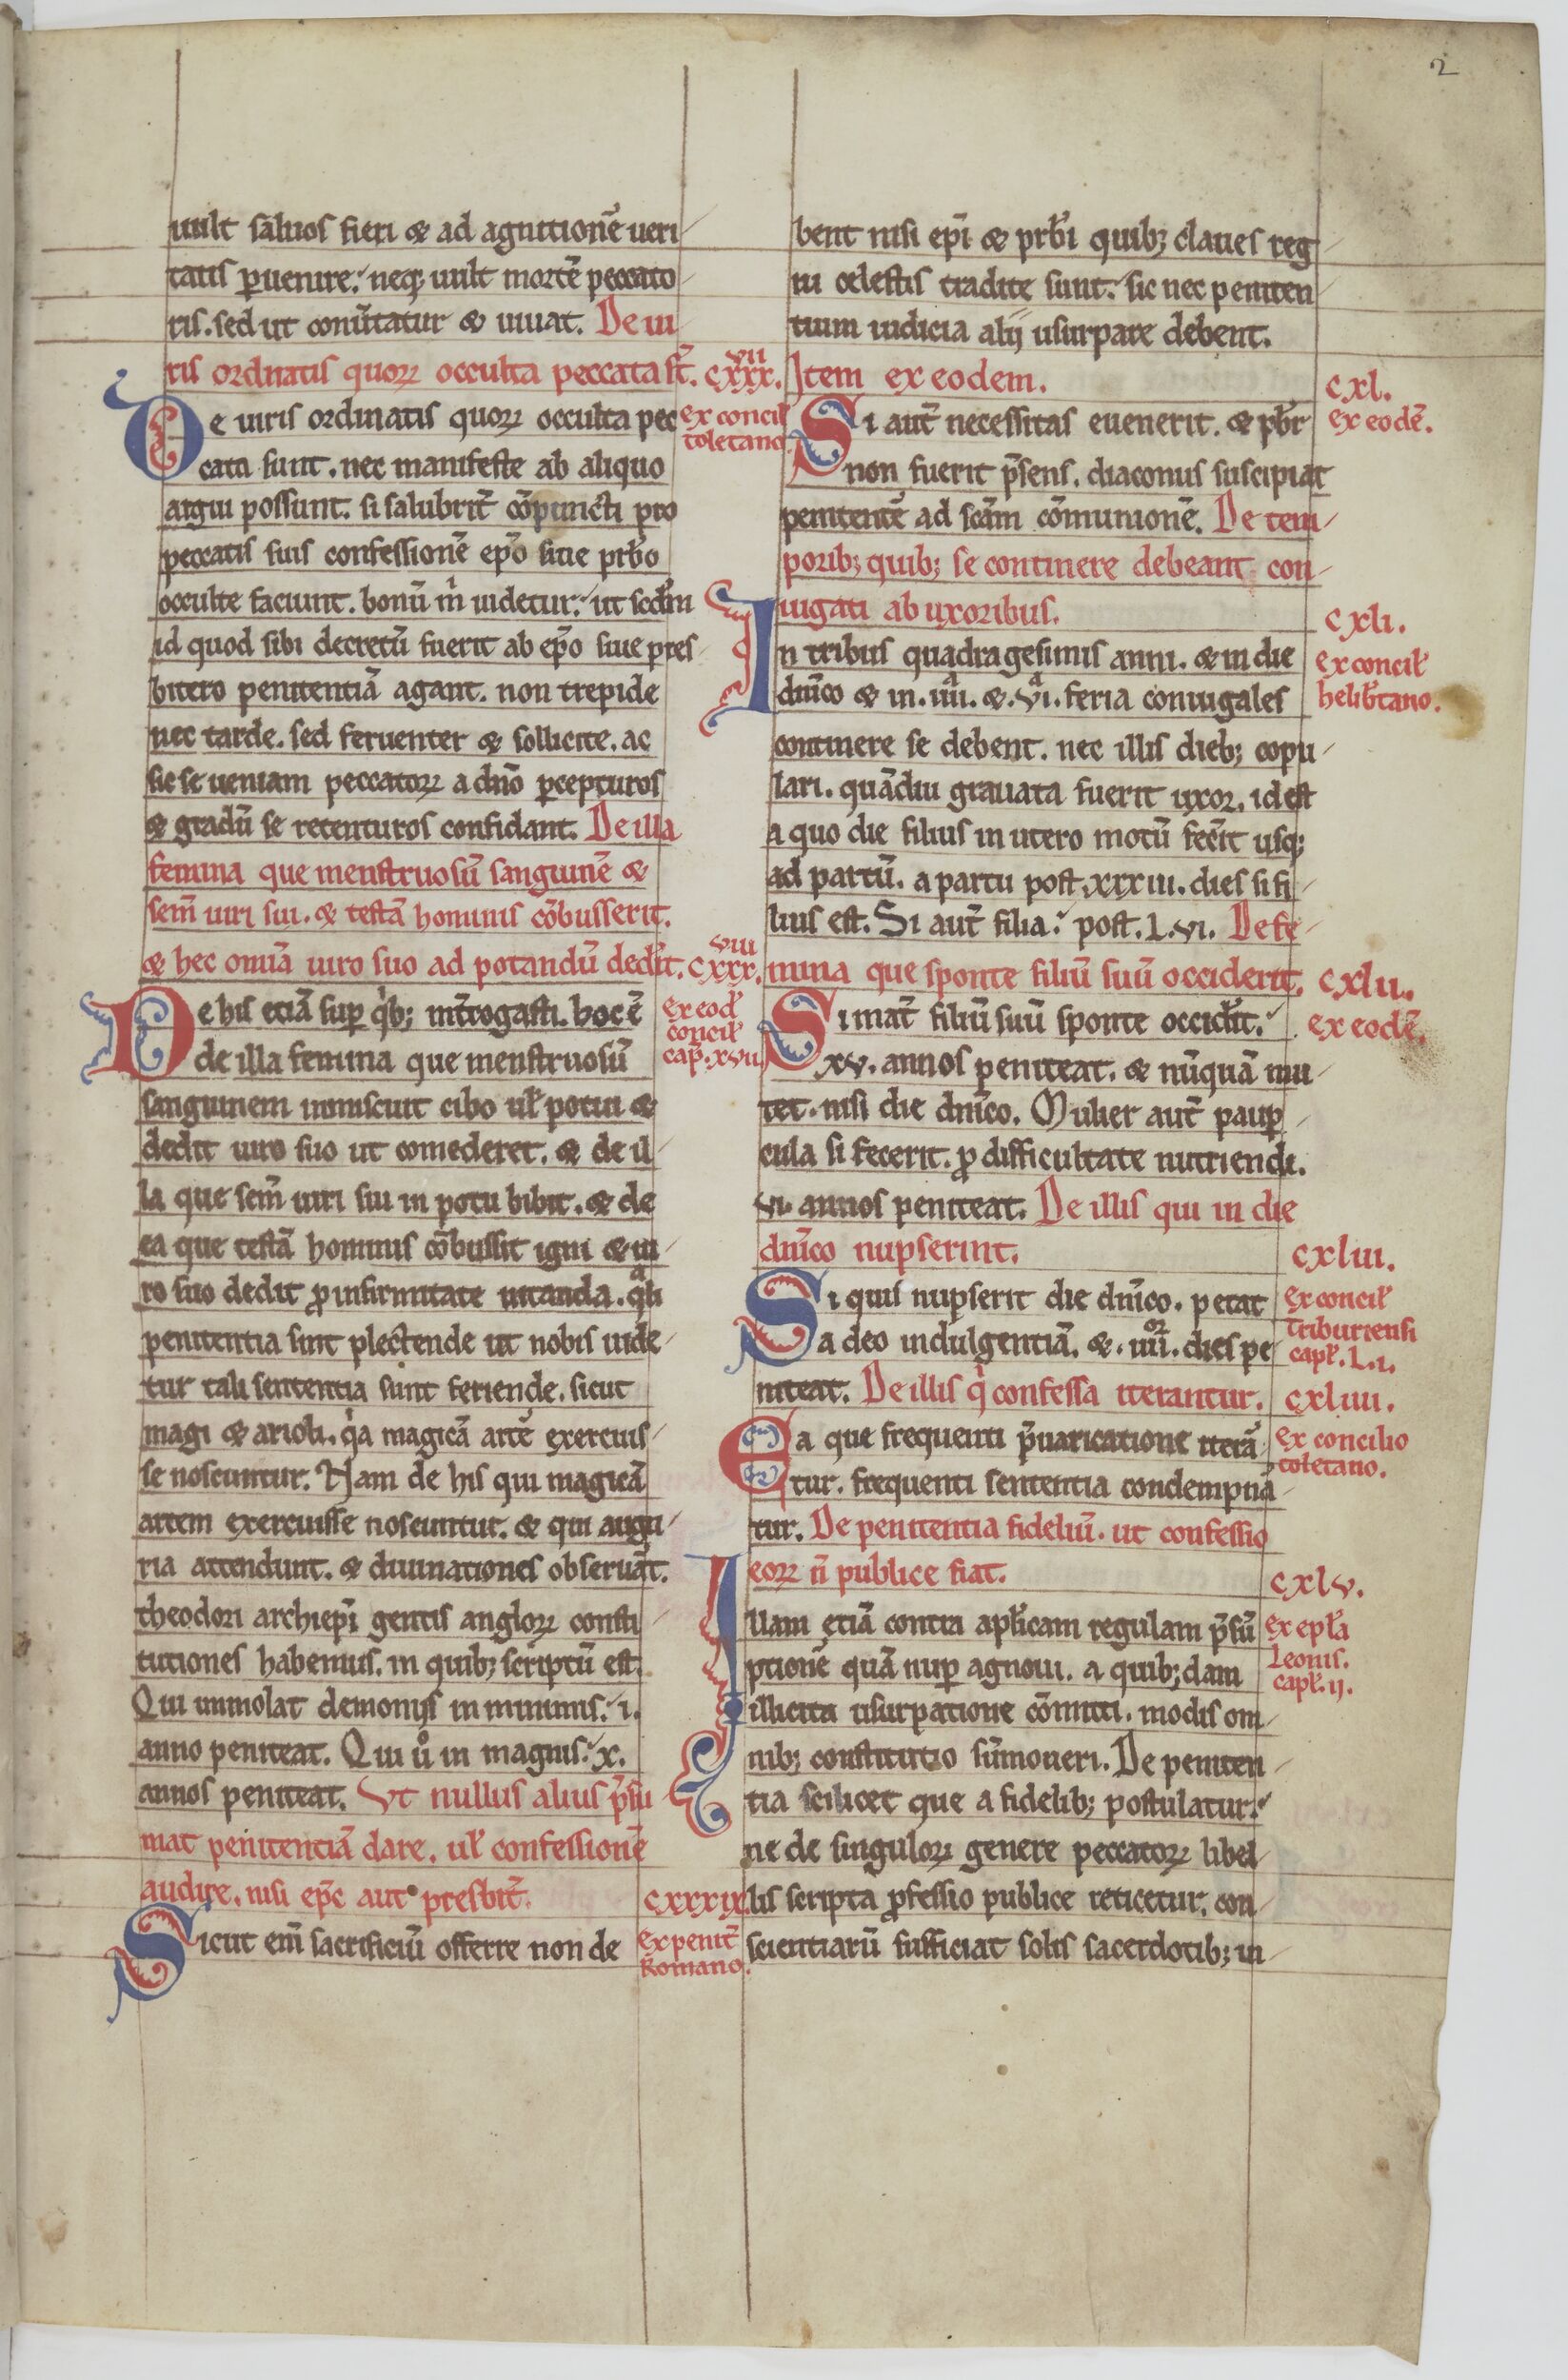 2
uult saluos fieri & ad agnitionē ueri
tatis p̱uenire. neq; uult mortē peccato
ris. sed ut conu̅tatur & uiuat. De ui
ris ordinatis quoꝝ occulta peccata st̄. cxxx.vii
De uiris ordinatis quoꝝ occulta pec
ex concil̕
toletano.
cata sunt. nec manifeste ab aliquo
argui possunt. si salubrit̄ cōpuncti pro
peccatis suis confessionē ep̄o siue prb̄o
occulte faciunt. bonū m̍ uidetur. ut scdm̄
id quod sibi decretū fuerit ab ep̄o siue pres
bitero penitentiā agant. non trepide
nec tarde. sed feruenter & sollicite. ac
sic se ueniam peccatoꝝ a dn̄o ꝑcepturos
& gradū se retenturos confidant. De illa
femina que menstruosū sanguinē &
sem̄ uiri sui. & testā hominis cōbusserit.
& hec omīa uiro suo ad potandū ded̕it. cxxx.viii
De his etiā sup̱ q̍b; int̄rogasti. hoc ē
de illa femina que menstruosū
ex eod̕
concil̕
cap̄. xvii
sanguinem inmiscuit cibo ul̕ potui &
dedit uiro suo ut comederet. & de il
la que sem̄ uiri sui in potu bibit. & de
ea que testā hominis cōbussit igni & ui
ro suo dedit ꝓ infirmitate uitanda. qͣli
penitentia sint plectende ut nobis uide
tur tali sententia sunt feriende. sicut
magi & arioli. q̍a magicā artē exercuis
se noscuntur. Nam de his qui magicā
artem exercuisse noscuntur. & qui augu
ria attendunt. & diuinationes obseruāt.
theodori archiep̄i gentis angloꝝ consti
tutiones habemus. in quib; scriptū est.
Qui immolat demonijs in minimis. i.
anno peniteat. Qui u̍o in magnis. x.
annos peniteat. Ut nullus alius p̄su
mat penitentiā dare. ul̕ confessionē
audire. nisi ep̄c aut presbit̄. cxxxix.
Sicut em̄ sacrificiū offerre non de
ex penit̄
Romano.
bent nisi ep̄i & prb̄i quib; claues reg
ni celestis tradite sunt. sic nec peniten
tium iudicia alij usurpare debent.
Item ex eodem. cxl.
Si aut̄ necessitas euenerit. & pb̄r
ex eodē.
non fuerit p̄sens. diaconus suscipiat
penitentē ad scām cōmunionē. De tem
porib; quib; se continere debeant con
iugati ab uxoribus. cxli.
In tribus quadragesimis anni. & in die
ex concil̕
helib̕tano.
dn̄ico & in. iiiiͣ. &. viͣ. feria coniugales
continere se debent. nec illis dieb; copu
lari. quādiu grauata fuerit uxor. id est
a quo die filius in utero motū fec̄it usq;
ad partū. a partu post. xxxiii. dies si fi
lius est. Si aut̄ filia. post. l.vi. De fe
mina que sponte filiū suū occiderit. cxlii.
Si mat̄ filiū suū sponte occid̕it.
ex eodē.
xv. annos peniteat. & nūquā mu
tet. nisi die dn̄ico. Mulier aut̄ paup̱
cula si fecerit. ꝓ difficultate nutriendi.
vi. annos peniteat. De illis qui in die
dn̄ico nupserint. cxliii.
Si quis nupserit die dn̄ico. petat
ex concil̕
Triburiensi
capl̕. l.i.
a deo indulgentiā. &. iiiior. dies pe
niteat. De illis q̍ confessa iterantur. cxliiii.
Ea que frequenti p̄uaricatione iterā
ex concilio
toletano.
tur. frequenti sententia condempnā
tur. De penitentia fideliū. ut confessio
eoꝝ n̄ publice fiat. cxlv.
Illam etiā contra apl̕icam regulam p̄sū
ex epl̕a
Leonis.
capl̕. ij.
ptionē quā nup̱ agnoui. a quib;dam
illicita usurpatione cōmitti. modis om
nib; constituo sūmoueri. De peniten
tia scilicet que a fidelib; postulatur.
ne de singuloꝝ genere peccatoꝝ libel
lis scripta ꝓfessio publice reticetur. con
scientiarū sufficiat solis sacerdotib; in